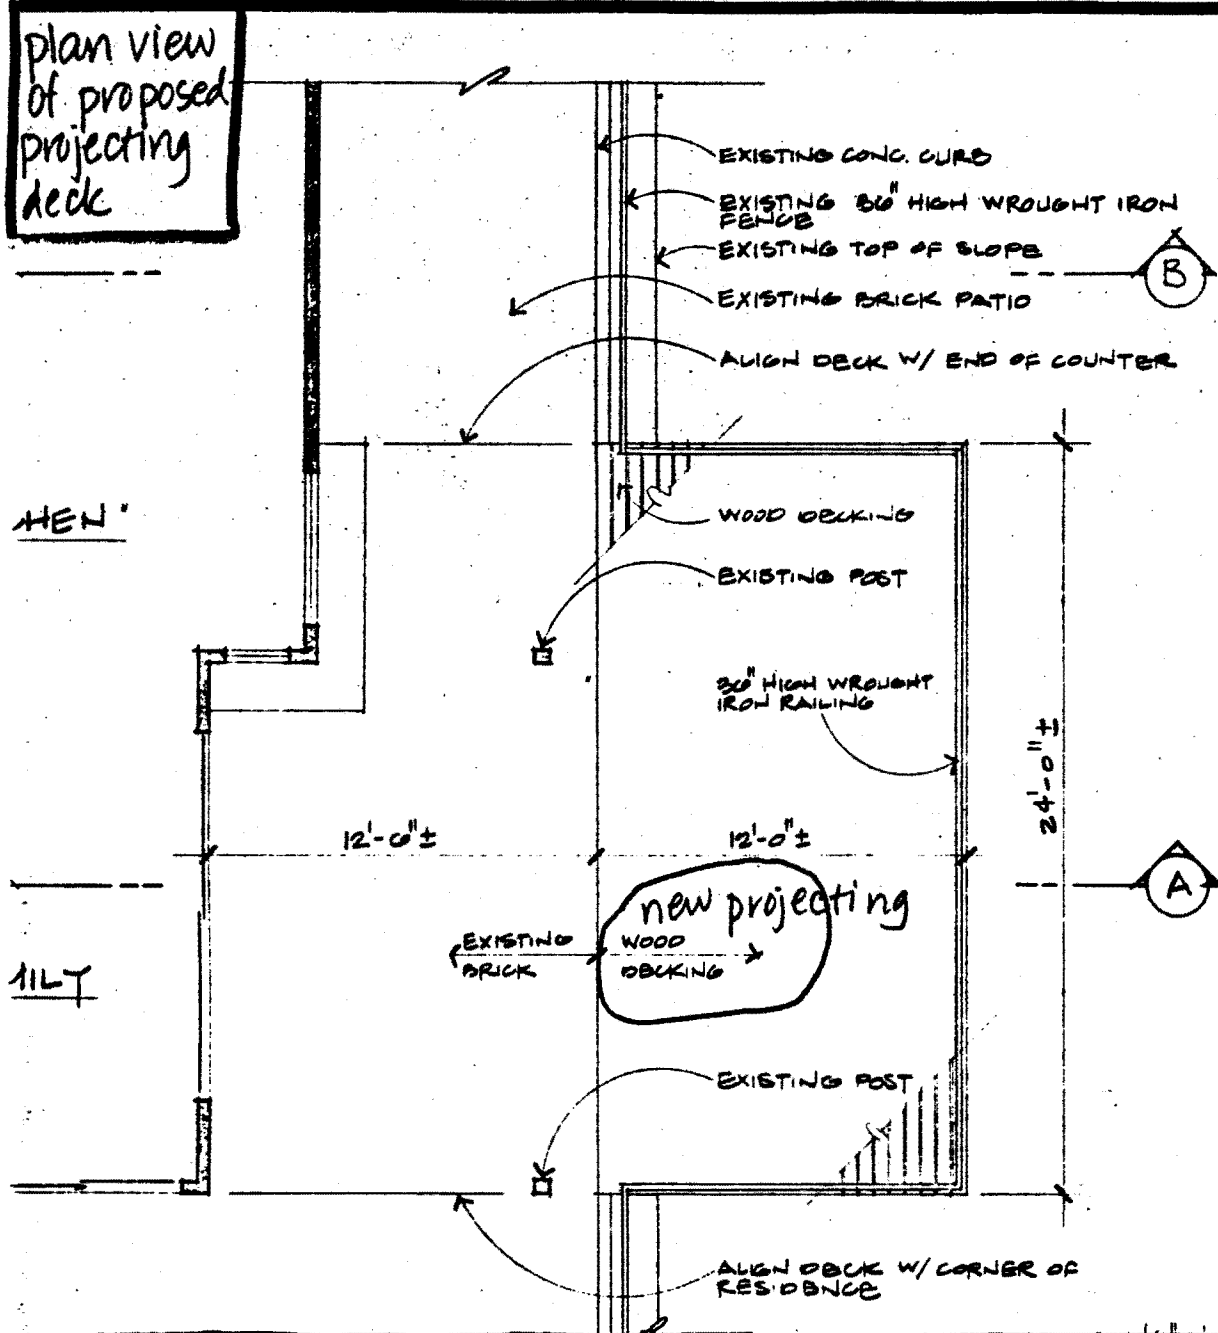 plan view
of proposed
projecting
deck
EXISTING CONC. CURB
EXISTING 36" HIGH WROUGHT IRON
FENCE
EXISTING TOP OF SLOPE
B
EXISTING BRICK PATIO
ALIGN DECK W/ END OF COUNTER
HEN
WOOD DECKING
EXISTING POST
36" HIGH WROUGHT
IRON RAILING
24'-0"±
12'-6"± 12'-0"±
A
new projecting
EXISTING WOOD
BRICK DECKING
MILY
EXISTING POST
ALIGN DECK W/ CORNER OF
RESIDENCE